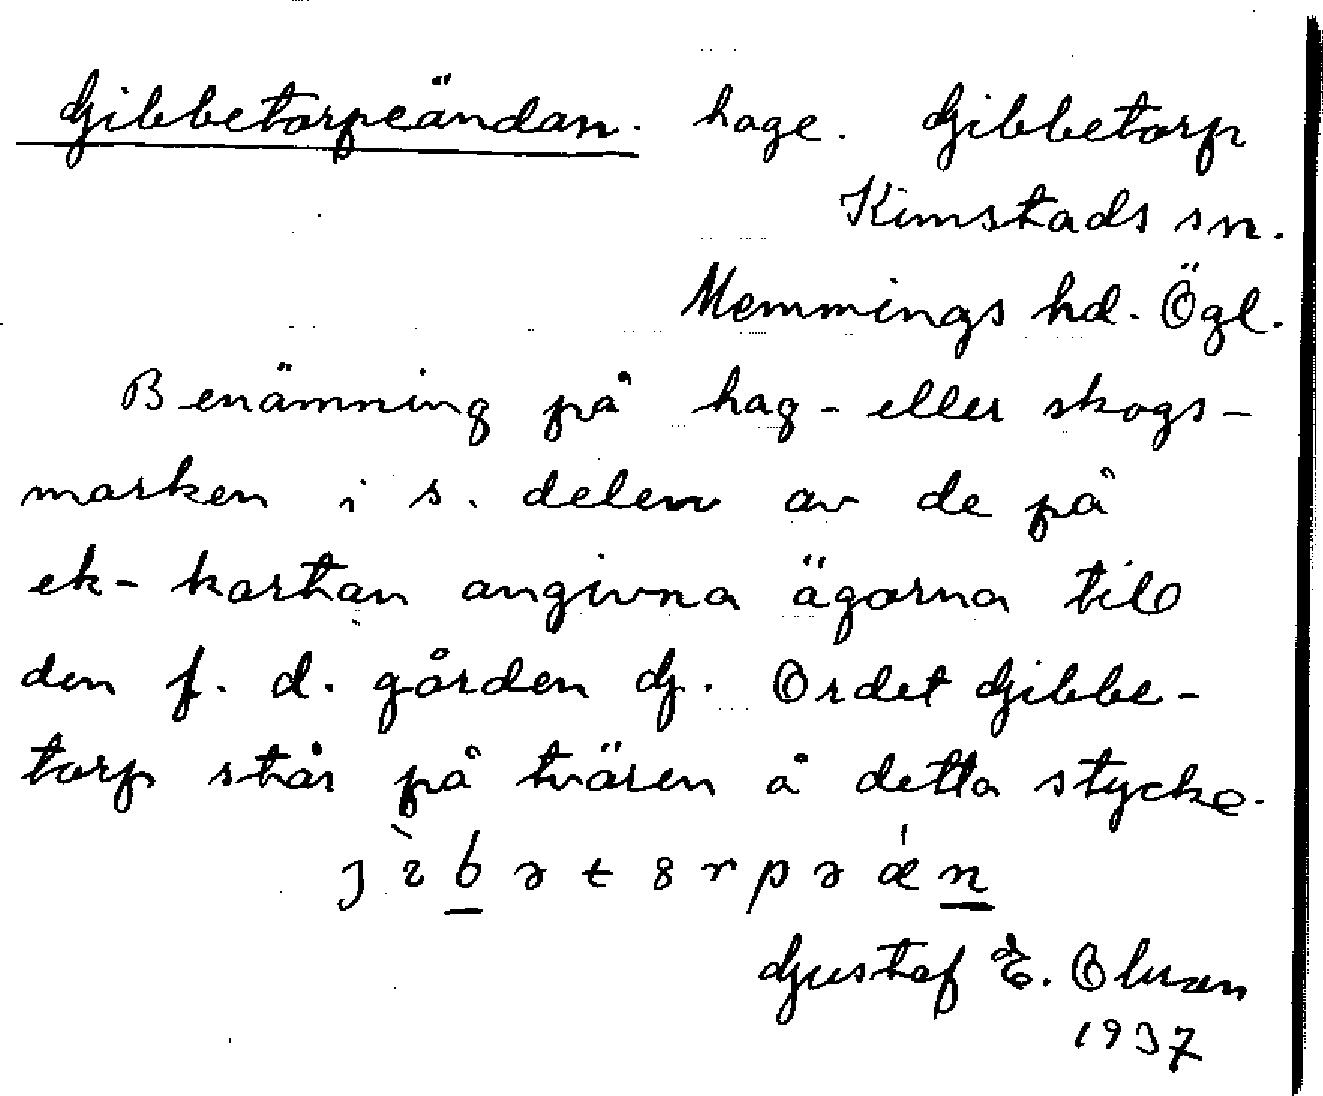 Gibbetorpeändan. hage. Gibbetorp
Kimstads sn.
Memmings hd. Ögl.
Benämning på hag- eller skogs-
marken i s. delen av de på
ek-kartan angivna ägorna till
den f. d. gården G. Ordet Gibbe-
torp står på tvären å detta stycke.
Gustaf E. Olsson
1937